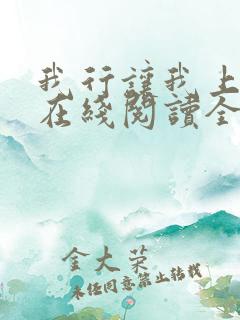 我行讓我上
在綫閱讀全
金大荣
未经同意禁止转载